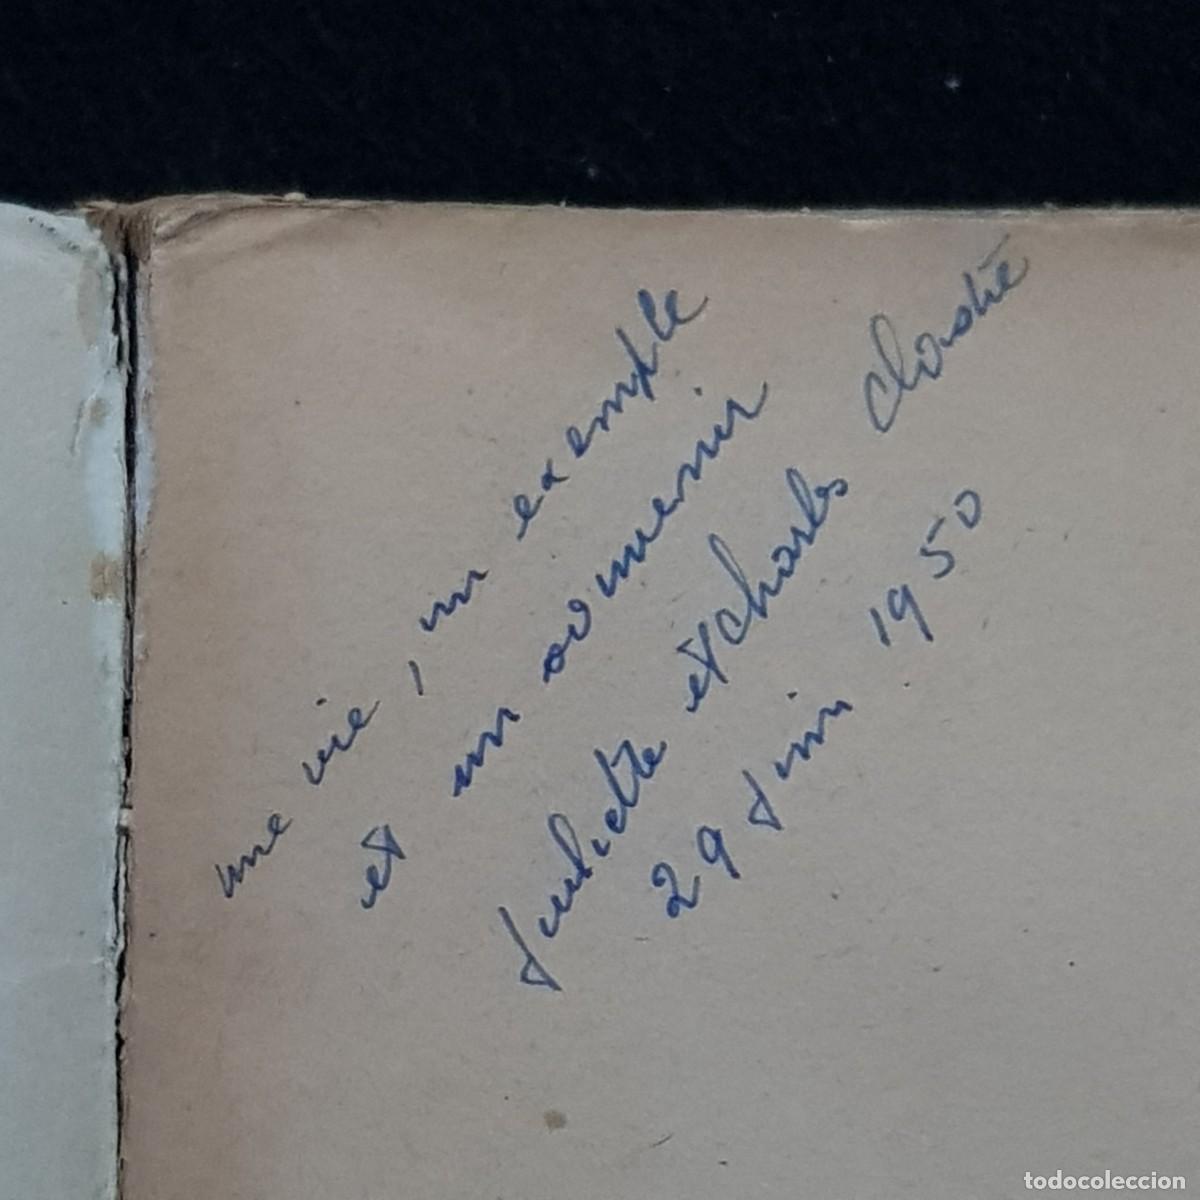 une vie, un exemple
et un souvenir
Juliette et Charles
29 Juin 1950
todocoleccion